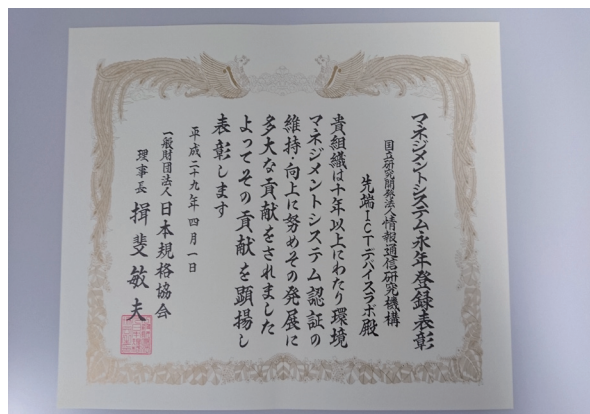 マネジメントシステム永年登録表彰
国立研究開発法人情報通信研究機構
先端ICTデバイスラボ殿
貴組織は十年以上にわたり環境
マネジメントシステム認証の
維持・向上に努めその発展に
多大な貢献をされました
よってその貢献を顕揚し
表彰します
平成二十九年四月一日
一般財団法人日本規格協会
理事長 揖斐敏夫